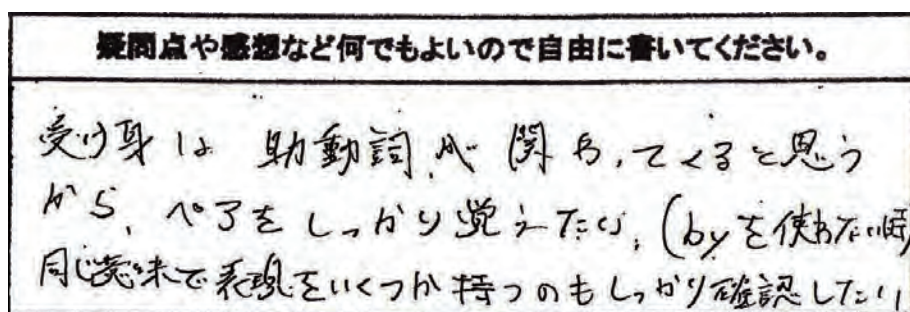 疑問点や感想など何でもよいので自由に書いてください。
受け身は 助動詞が 関わってくると思う
から、ペアをしっかり覚えたい。(byを使わない時)
同じ意味で表現をいくつか持つのもしっかり確認したい